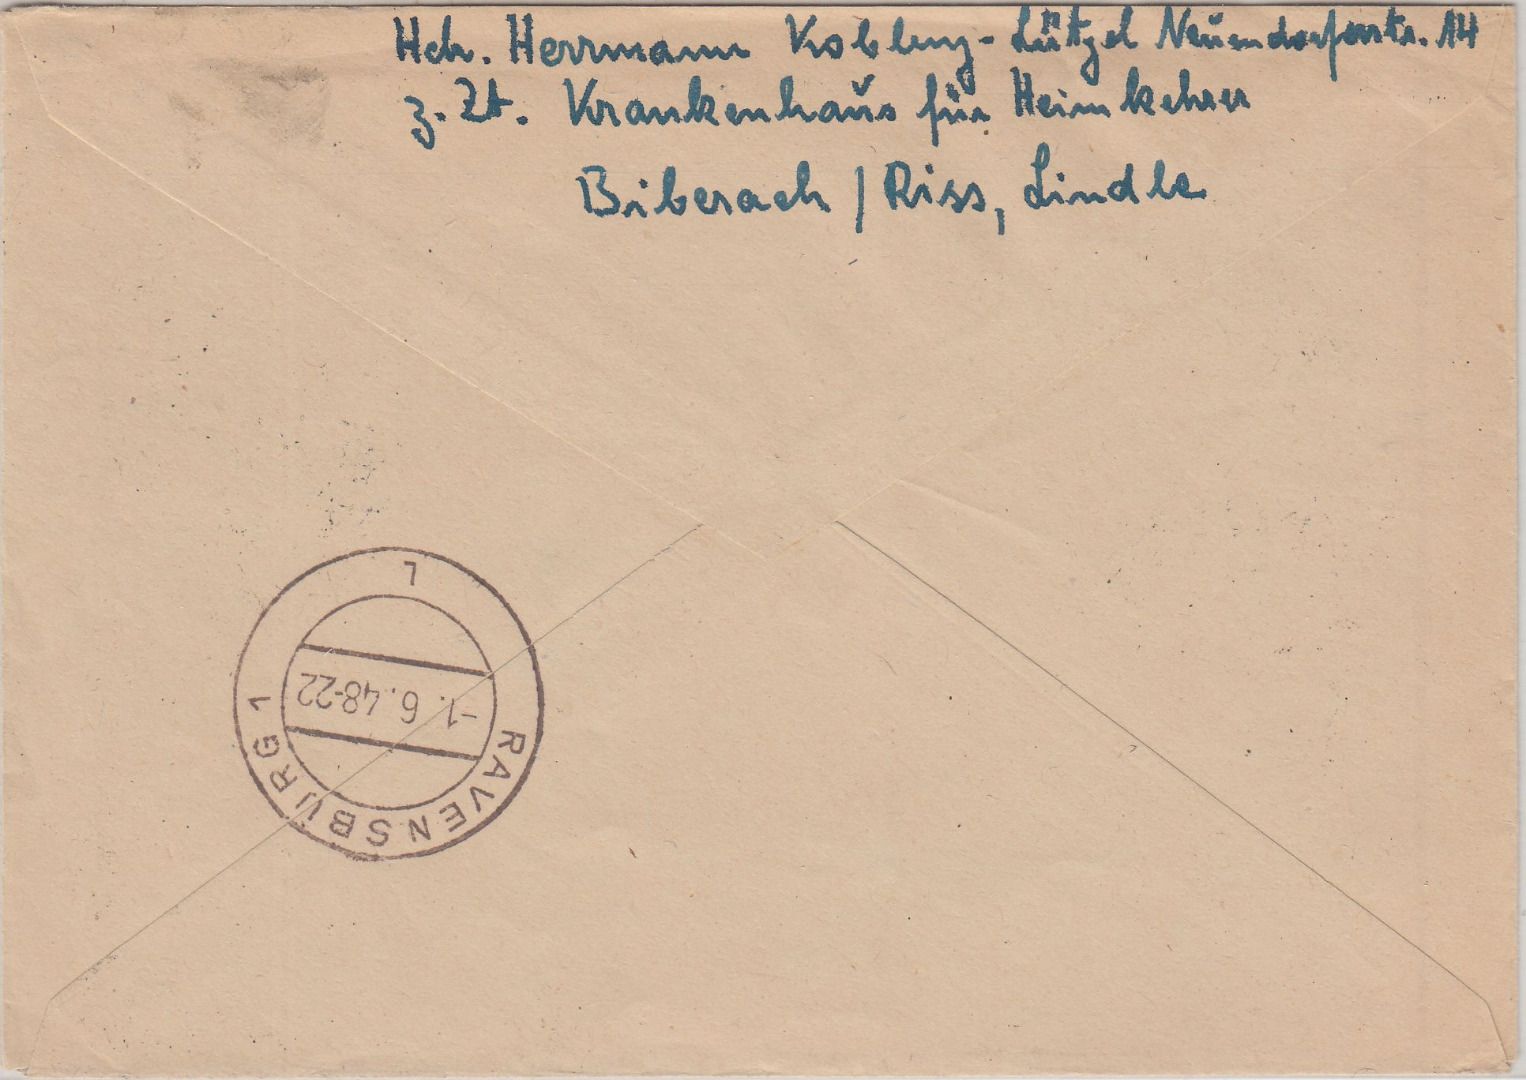 Hch. Herrmann Koblenz-Lützel Neuendorferstr. 14
z. Zt. Krankenhaus für Heimkehrer
Biberach / Riss, Lindle
RAVENSBURG 1
-1. 6. 48-22
L